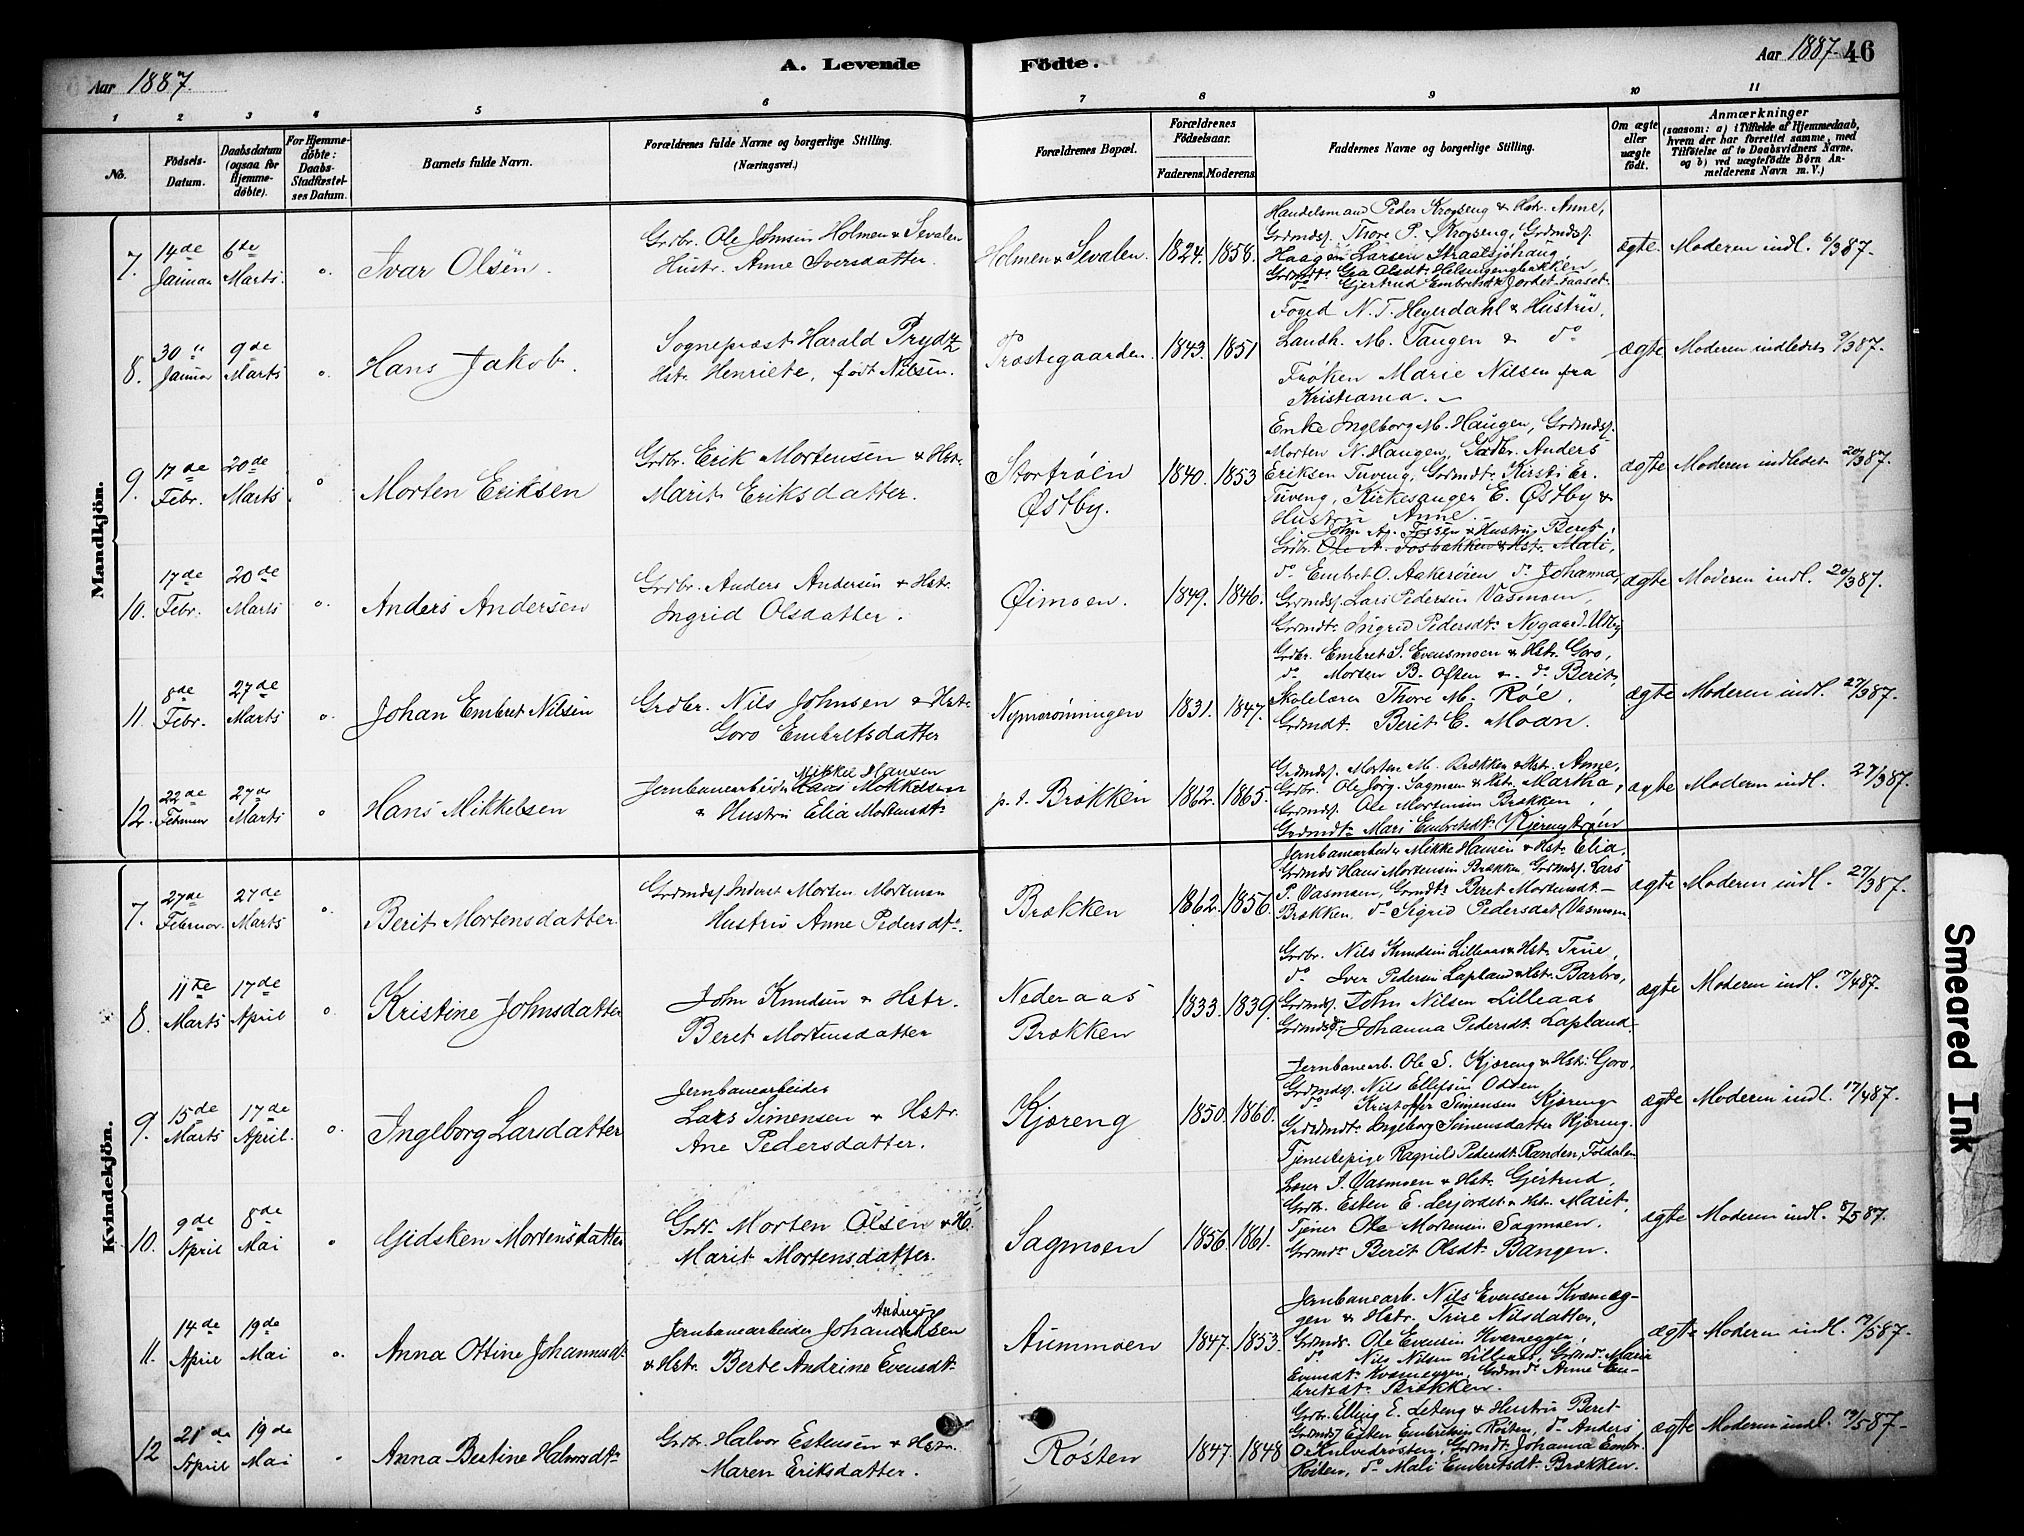 Aar 1887.
A. Levende Födte.
Aar 1887. 46
1 2 3 4 5 6 7 8 9 10 11
No.
Födsels-Datum.
Daabsdatum (ogsaa for Hjemmedöbte).
For Hjemmedöbte: Daabs-Stadfæstelses Datum.
Barnets fulde Navn.
Forældrenes fulde Navne og borgerlige Stilling.
(Næringsvei.)
Forældrenes Bopæl.
Forældrenes Födselsaar.
Faderens. Moderens.
Faddernes Navne og borgerlige Stilling.
Om ægte eller uægte födt.
Anmærkninger
(saasom: a) i Tilfælde af Hjemmedaab, hvem der har forrettet samme, med Tilföielse af to Daabsvidners Navne. og b) ved uægtefödte Börn Anmelderens Navn m. V.)
Mandkjön.
7. 14de Januar 6te Marts. o. Ivar Olsen.
Grdbr. Ole Johnsen Holmen v Sevalen
Hustr. Anne Iversdatter.
Holmen v Sevalen. 1824. 1858.
Handelsmand Peder Krogseng & Hstr. Anne,
Grdmdsf. Thore P. Krogseng, Grdmdsf.
Haagen Larsen Straalsjöhaug,
Grdmdtr. Gea Olsdtr Helsingengbakken,
do Gjertrud Embretsdtr Jordet Faaset.
ægte. Moderen indl. 6/3 87.
8. 30te Januar 9de Marts o. Hans Jakob.
Sogneprest Harald Prydz
Hstr. Henriete, födt Nilsen.
Præstegaarden. 1843. 1851
Foged N. T. Heyerdahl & Hustru,
Landh. M. Tangen & do
Fröken Marie Nilsen fra
Kristiania.
ægte Moderen indledet 9/3 87.
9. 17de Febr. 20de Marts o Morten Eriksen
Grdbr. Erik Mortensen & Hstr.
Marit Eriksdatter.
Stortröen
Østby. 1840. 1853
Enke Ingeborg M. Haugen, Grdmdsf.
Morten N. Haugen, Gadbr. Anders
Eriksen Tuveng, Grdmdtr. Kirsti Er.
Tuveng, Kirkesanger E. Østby &
Hustru Anne.
ægte Moderen indledet 20/3 87.
10. 17de Febr. 20de Marts o. Anders Andersen
Grdbr. Anders Andersen & Hstr.
Ingrid Olsdatter.
Øimoen. 1849. 1846.
John Ag. Fossen & Hustru Beret,
Grdbr. Ole A. Fosbakken & Hstr. Mali,
do Embret O. Aakeröien do Johanna,
Grdmdsf. Lars Pedersen Vasmoen,
Grdmdtr. Ingrid Pedersdtr. Nygaard Utby
ægte Moderen indl. 20/3 87.
11. 8de Febr. 27de Marts o. Johan Embret Nilsen
Grdbr. Nils Johnsen & Hstr
Goro Embretsdatter
Nymoröningen 1831. 1847.
Grdbr. Embret S. Evensmoen & Hstr. Goro,
do Morten B. Often & do Berit,
Skolelærer Thore M. Röe,
Grdmdt. Berit E. Moan.
ægte Moderen indl. 27/3 87.
12. 22de Februar 27de Marts o Hans Mikkelsen
Mikkel Hansen
Jernbanearbeider Hans Mikkelsen
& Hustru Elia Mortensdtr
p. t. Brækken 1862. 1865.
Grdmdsf. Morten M. Brækken & Hst. Anne,
Grdbr. Ole Jörg. Sagmoen & Hstr. Martha,
Grdmdsf. Ole Mortensen Brækken,
Grdmdtr Mari Embretsdtr. Kjerengtröen
ægte Moderen indl. 27/3 87.
Kvindekjön.
7. 27de Februar. 27de Marts o. Berit Mortensdatter
Grdmdsf. Inderst Morten Mortensen
Hustru Anne Pedersdtr.
Brækken 1862. 1856.
Jernbanearbeider Mikke Hansen & Hst. Elia,
Grdmds Hans Mortensen Brækken, Grdmdsf. Lars
P. Vasmoen, Grmdtr Berit Mortensdt
Brækken, do Sigrid Pedersdat Vasmoen
ægte Moderen indl. 27/3 87.
8. 11te Marts 17de April o Kristine Johnsdatter
John Knudsen & Hstr.
Beret Mortensdatter
Nederaas
Brækken 1833. 1839.
Grdbr. Nils Knudsen Lilleaas & Hst. True,
do Iver Pedersen Lapland & Hst. Barbro,
Grdmdsf. John Nilsen Lilleaas
Grdmdsdtr. Johanna Pedersdt. Lapland.
ægte Moderen indl. 17/4 87.
9. 15de Marts 17de April. o. Ingeborg Larsdatter
Jernbanearbeider
Lars Simensen & Hstr.
Ane Pedersdatter.
Kjæreng 1850. 1860.
Jernbanearb. Ole S. Kjæreng & Hst. Goro,
Grdmdsf. Nils Ellefsen Odden,
do Kristoffer Simensen Kjæreng
Grdmdtr Ingeborg Simensdatter Kjæreng.
Tjenestepige Ragnild Pedersdt. Randen, Foldalen
ægte Moderen indl. 17/4 87.
10. 9de April 8de Mai o Gidsken Mortensdatter
Grdbr Morten Olsen & H.
Marit Mortensdatter.
Sagmoen 1856. 1861.
Lærer S. Vasmoen & Hst. Gjertrud,
Grdbr. Esten E. Lesjordet & Hst. Marit,
Tjener Ole Mortensen Sagmoen.
Grdmdtr Berit Olsdt. Bangen.
ægte Moderen indl. 8/5 87.
11. 14de April 19de Mai o. Anna Ottine Johannesdt
Jernbanearbeider Johan Olsen
& Hstr. Berte Andrine Evensdt.
Aummoen 1847. 1853.
Jernbanearb. Nils Evensen Kvæneg-
gen & Hstr. True Nilsdatter,
Grdmds. Ole Evensen Kværneggen,
do Nils Nilsen Lilleaas, Grdmd. Maria
Evensdt Kværneggen, Grdmdtr Anne Em-
bretsdt Brækken.
ægte Moderen indl. 19/5 87.
12 21de April 19de Mai o Anna Bertine Halvorsdtr
Grdbr. Halvor Estensen & Hstr.
Maren Eriksdatter.
Røsten 1847. 1848
Grdbr. Elling E. Leteng & Hustru Beret
Grdmdsf Esten Embretsen Røsten, do Anders
O. Kulvedrosten, Grdmdt Johanna Embr.
Rösten, do Mali Embretsdt. Brækken.
ægte Moderen indl. 19/5 87
Smeared Ink